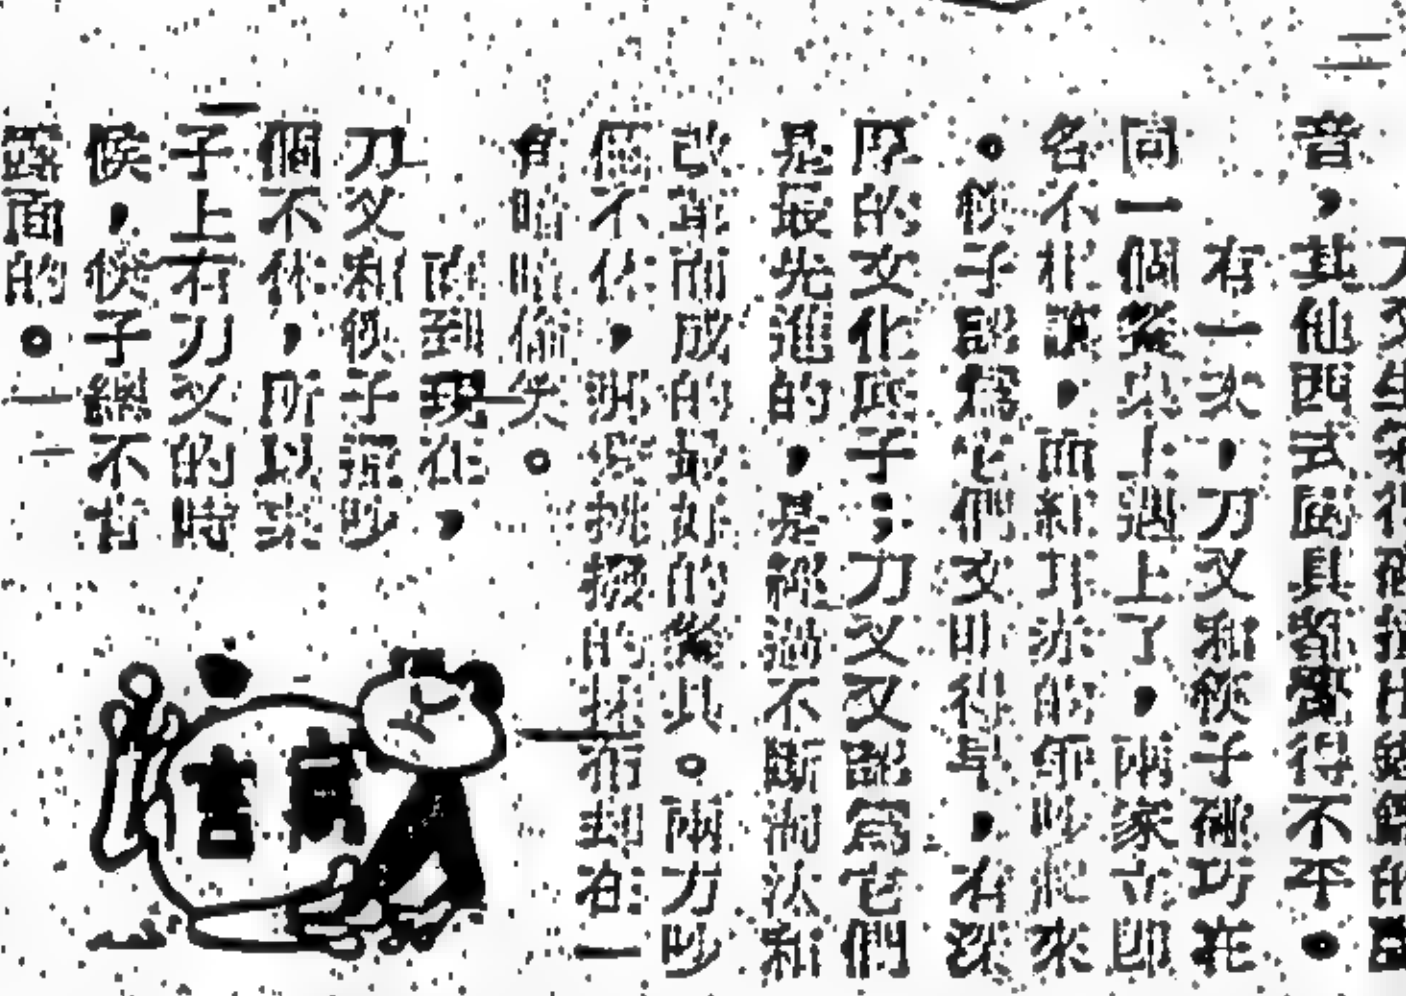 刀叉生來得碰撞出鏗鏘的聲
音，其他西式廚具都覺得不平。
有一次，刀叉和筷子碰巧在
同一個餐桌上遇上了，兩家立即
名不相讓，而紅耳赤的爭吵起來
。筷子認爲它們又叫得早，有深
厚的文化底子；刀叉又認爲它們
是最先進的，是經過不斷淘汰和
改革而成的最好的餐具。兩方吵
個不休，那愛挑撥的抹布却在一
角暗暗偷笑。
直到現在，
刀叉和筷子還吵
個不休，所以菜
子上有刀叉的時
候，筷子總不肯
露面的。
寓言